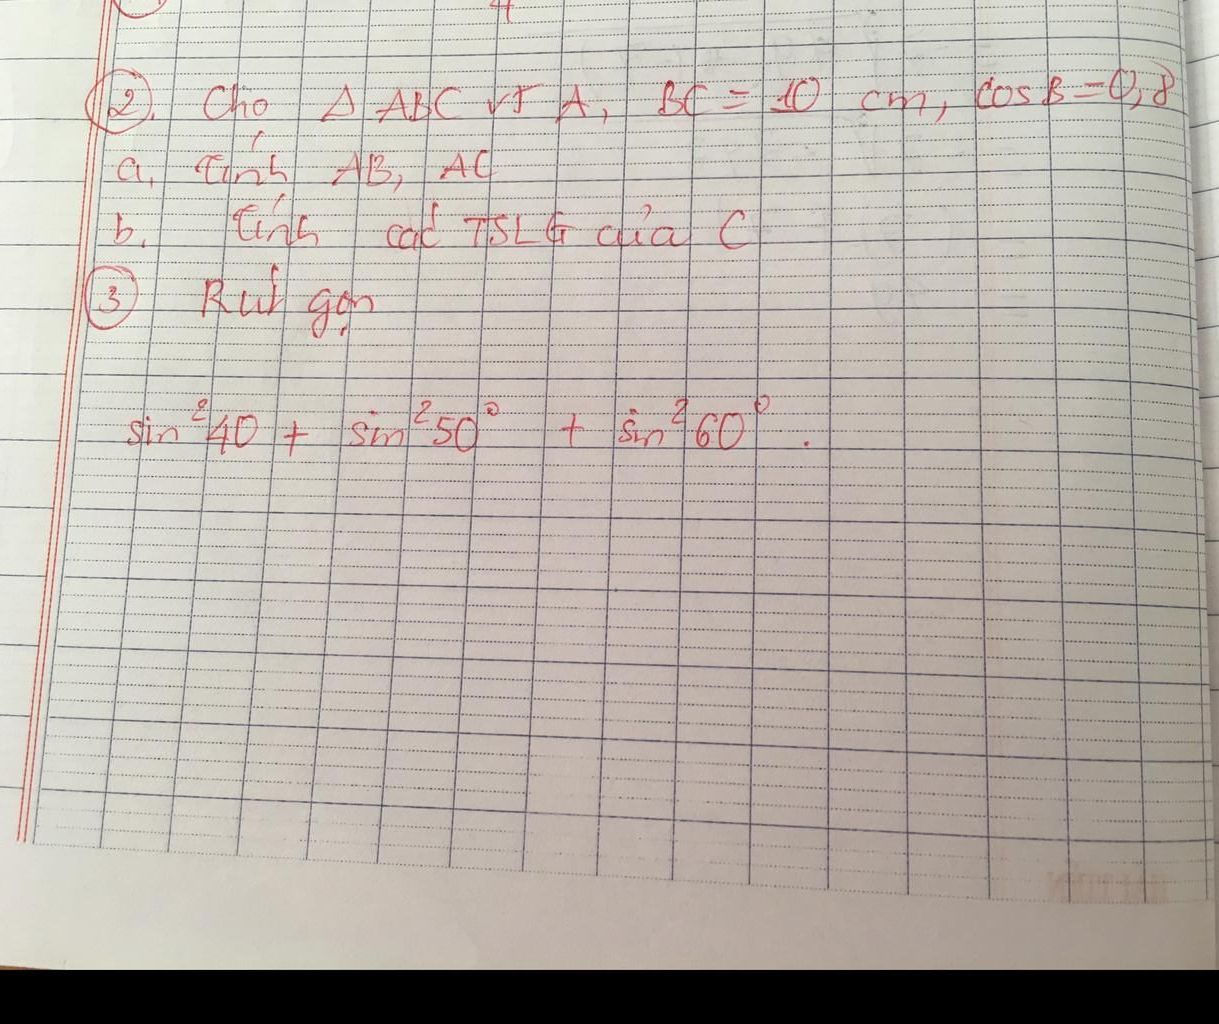 2. Cho Δ ABC vσ A, BC = 10 cm, cosB = 0,8
a. tính AB, AC
b. tính các TSLG của C
3 Rút gọn
sin²40 + sin²50° + sin²60° .